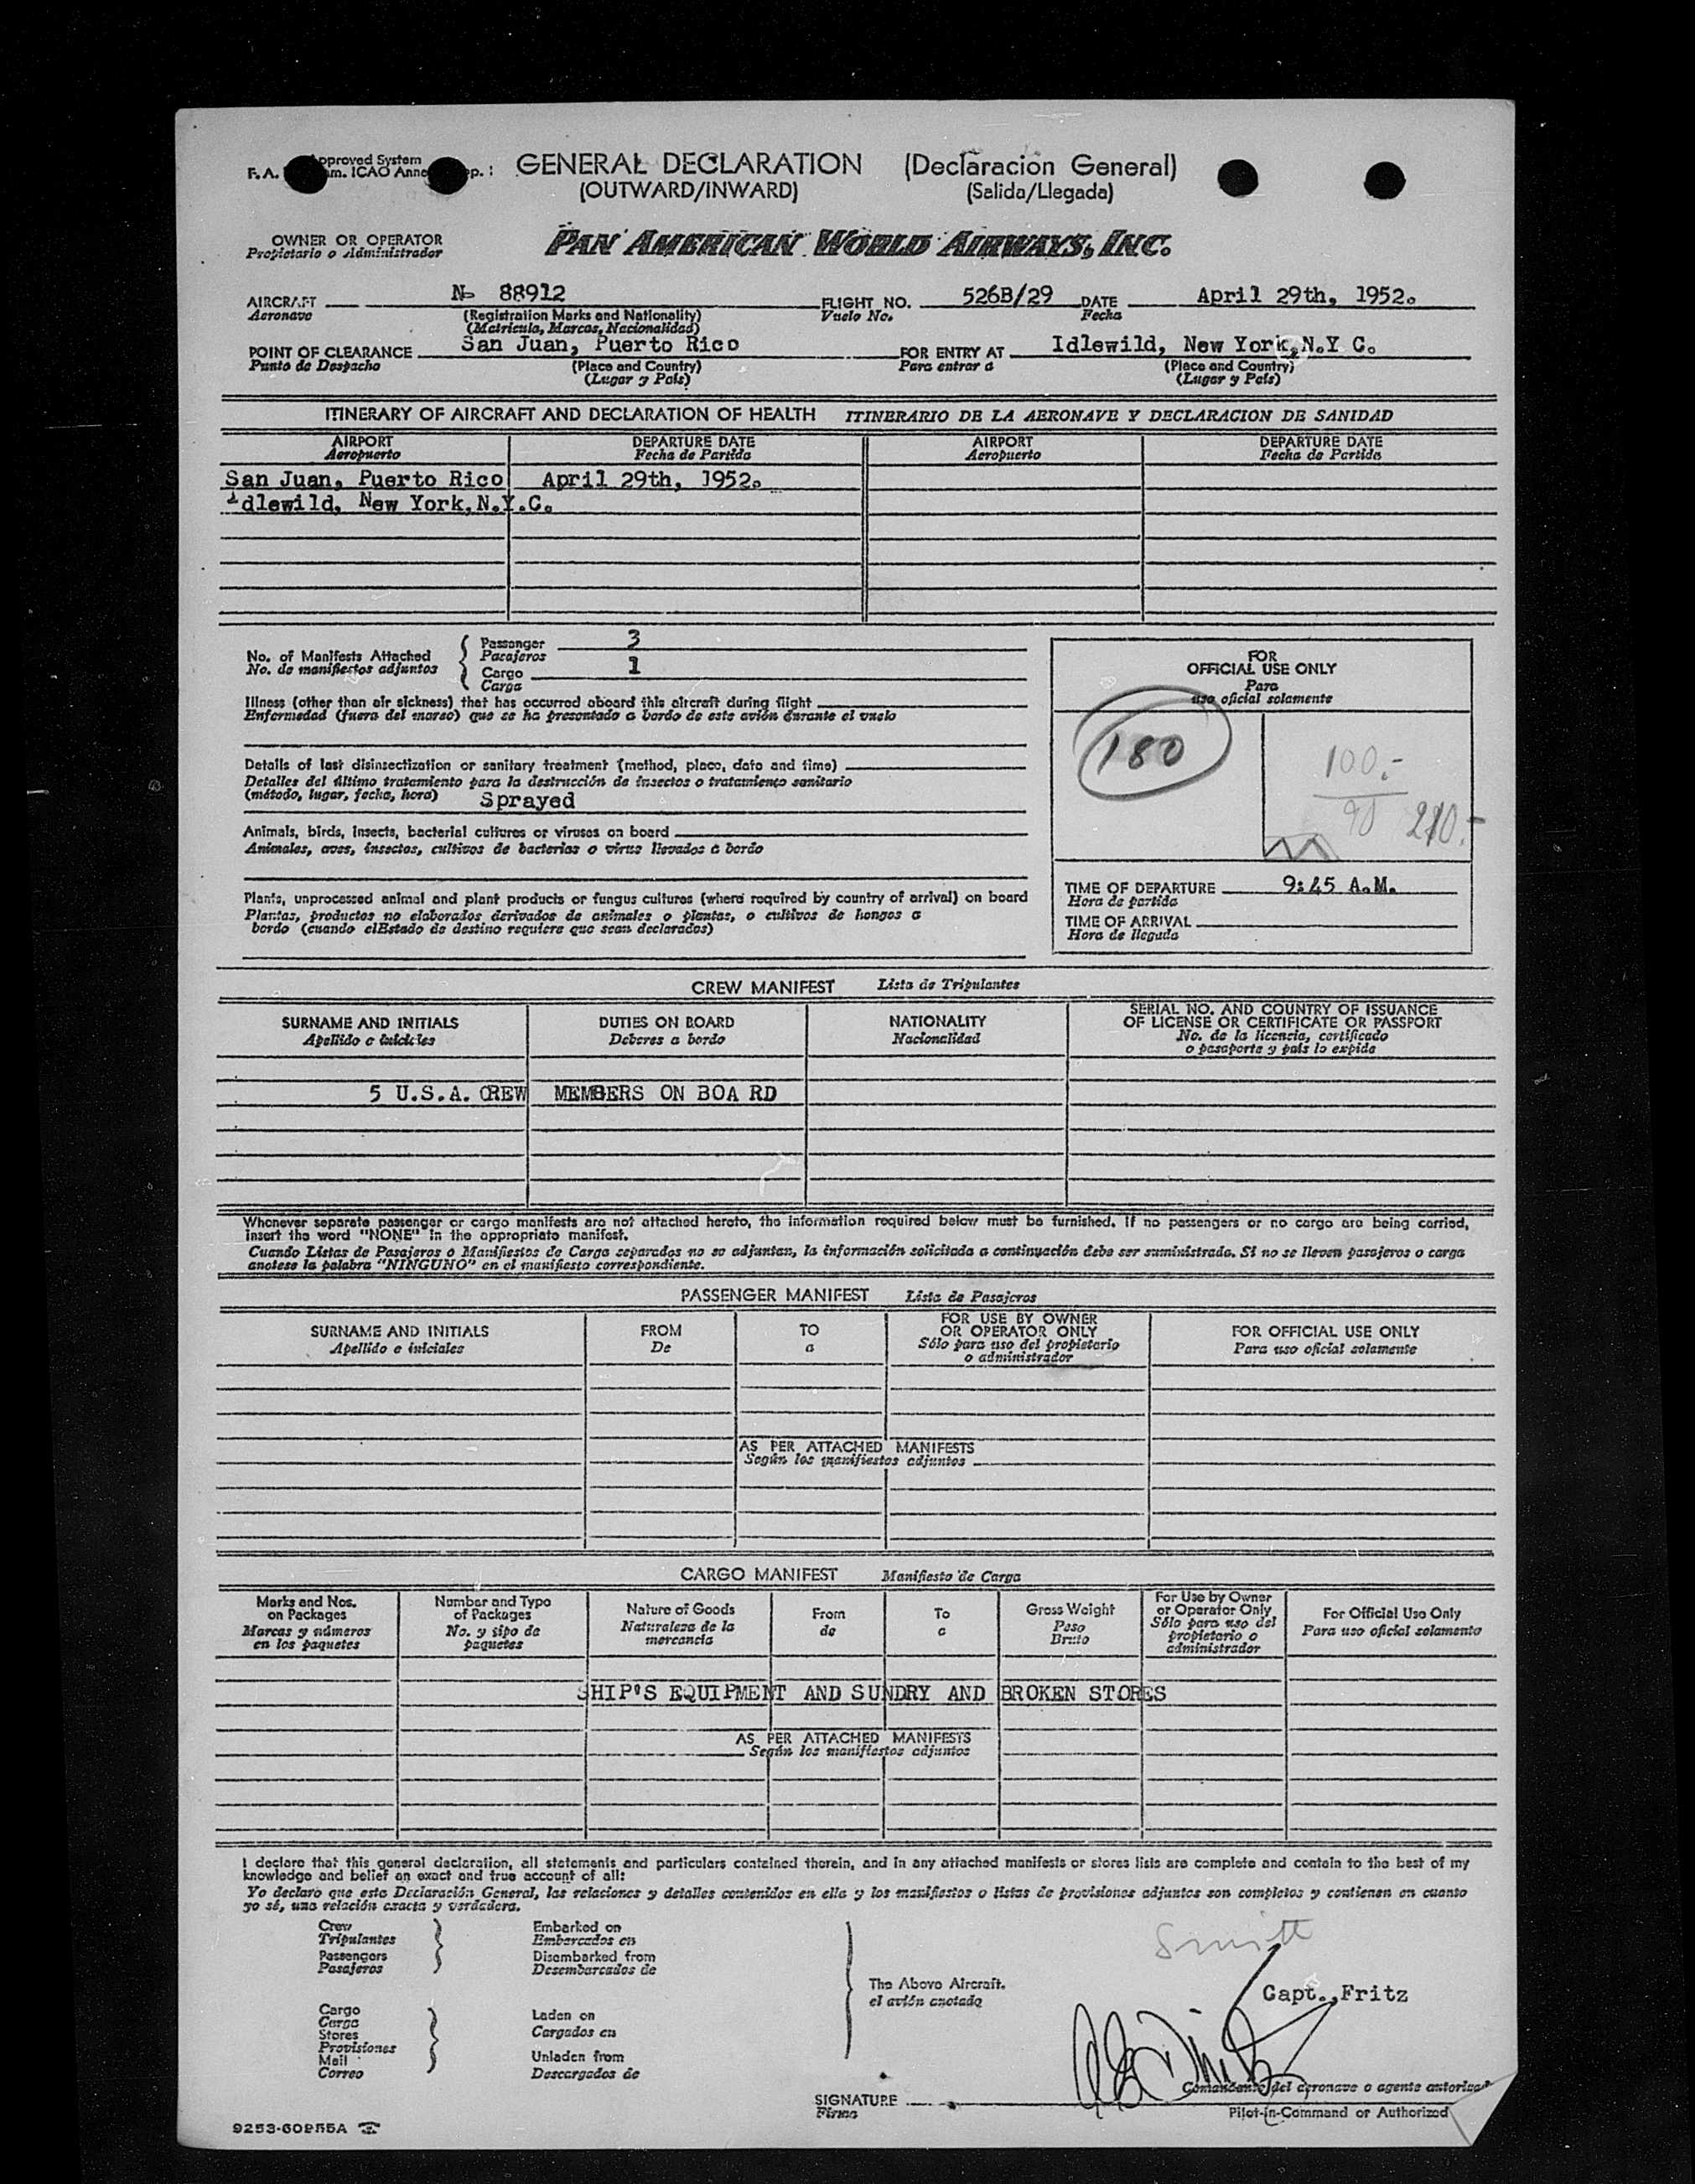 F.A. pproved System
m. ICAO Anne p. :
GENERAL DECLARATION (Declaración General)
(OUTWARD/INWARD) (Salida/Llegada)
OWNER OR OPERATOR
Propietario o Administrador
PAN AMERICAN WORLD AIRWAYS, INC.
AIRCRAFT N- 88912 FLIGHT NO. 526B/29 DATE April 29th, 1952.
Aeronave (Registration Marks and Nationality) Vuelo No. Fecha
(Matricula, Marcas, Nacionalidad)
POINT OF CLEARANCE San Juan, Puerto Rico FOR ENTRY AT Idlewild, New York,N.Y C.
Punto de Despacho (Place and Country) Para entrar a (Place and Country)
(Lugar y País) (Lugar y País)
ITINERARY OF AIRCRAFT AND DECLARATION OF HEALTH ITINERARIO DE LA AERONAVE Y DECLARACION DE SANIDAD
AIRPORT DEPARTURE DATE AIRPORT DEPARTURE DATE
Aeropuerto Fecha de Partida Aeropuerto Fecha de Partida
San Juan, Puerto Rico April 29th, 1952.
Idlewild, New York,N.Y.C.
No. of Manifests Attached
No. de manifiestos adjuntos
Passenger 3
Pasajeros
Cargo 1
Carga
Illness (other than air sickness) that has occurred aboard this aircraft during flight
Enfermedad (fuera del mareo) que se ha presentado a bordo de este avión durante el vuelo
Details of last disinsectization or sanitary treatment (method, place, date and time)
Detalles del último tratamiento para la destrucción de insectos o tratamiento sanitario
(método, lugar, fecha, hora) Sprayed
Animals, birds, insects, bacterial cultures or viruses on board
Animales, aves, insectos, cultivos de bacterias o virus llevados a bordo
Plants, unprocessed animal and plant products or fungus cultures (where required by country of arrival) on board
Plantas, productos no elaborados derivados de animales o plantas, o cultivos de hongos a
bordo (cuando elEstado de destino requiere que sean declarados)
FOR
OFFICIAL USE ONLY
Para
uso oficial solamente
180
100.-
90 210.-
TIME OF DEPARTURE 9:45 A.M.
Hora de partida
TIME OF ARRIVAL
Hora de llegada
CREW MANIFEST Lista de Tripulantes
SURNAME AND INITIALS DUTIES ON BOARD NATIONALITY SERIAL NO. AND COUNTRY OF ISSUANCE
OF LICENSE OR CERTIFICATE OR PASSPORT
Apellido e iniciales Deberes a bordo Nacionalidad No. de la licencia, certificado
o pasaporte y país lo expide
5 U.S.A. CREW MEMBERS ON BOA RD
Whenever separate passenger or cargo manifests are not attached hereto, the information required below must be furnished. If no passengers or no cargo are being carried,
insert the word "NONE" in the appropriate manifest.
Cuando Listas de Pasajeros o Manifiestos de Carga separados no se adjuntan, la información solicitada a continuación debe ser suministrada. Si no se lleven pasajeros o carga
anotese la palabra "NINGUNO" en el manifiesto correspondiente.
PASSENGER MANIFEST Lista de Pasajeros
SURNAME AND INITIALS FROM TO FOR USE BY OWNER FOR OFFICIAL USE ONLY
OR OPERATOR ONLY
Apellido e iniciales De a Sólo para uso del propietario Para uso oficial solamente
o administrador
AS PER ATTACHED MANIFESTS
Según los manifiestos adjuntos
CARGO MANIFEST Manifiesto de Carga
Marks and Nos.
on Packages
Marcas y números
en los paquetes
Number and Type
of Packages
No. y tipo de
paquetes
Nature of Goods
Naturaleza de la
mercancia
From
de
To
a
Gross Weight
Peso
Bruto
For Use by Owner
or Operator Only
Sólo para uso del
propietario o
administrador
For Official Use Only
Para uso oficial solamente
SHIP'S EQUIPMENT AND SUNDRY AND BROKEN STORES
AS PER ATTACHED MANIFESTS
Según los manifiestos adjuntos
I declare that this general declaration, all statements and particulars contained therein, and in any attached manifests or stores lists are complete and contain to the best of my
knowledge and belief an exact and true account of all:
Yo declaro que esta Declaración General, las relaciones y detalles contenidos en ella y los manifiestos o listas de provisiones adjuntos son completos y contienen en cuanto
yo sé, una relación exacta y verdadera.
Crew
Tripulantes
Passengers
Pasajeros
Embarked on
Embarcados en
Disembarked from
Desembarcados de
Cargo
Carga
Stores
Provisiones
Mail
Correo
Laden on
Cargados en
Unladen from
Descargados de
The Above Aircraft.
el avión anotado
Smith
Capt., Fritz
Comandante del aeronave o agente autorizad
SIGNATURE
Firma
Pilot-in-Command or Authorized
9253-60855A